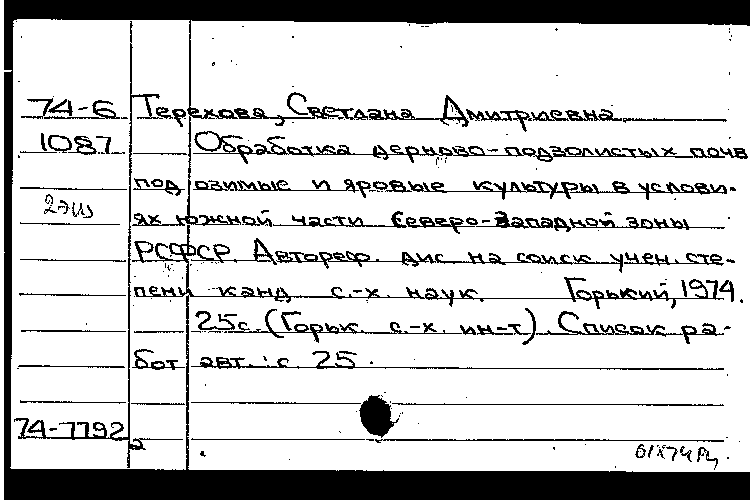 74-6 Терехова, Светлана Дмитриевна
1087 Обработка дерново-подзолистых почв
под озимые и яровые культуры в услови-
2 экз
ях южной части Северо-Западной зоны
РСФСР. Автореф. дис на соиск учен. сте-
пени канд с.-х. наук. Горький, 1974.
25с. (Горьк. с.-х. ин-т). Список ра-
бот авт.: с. 25.
74-7792
а